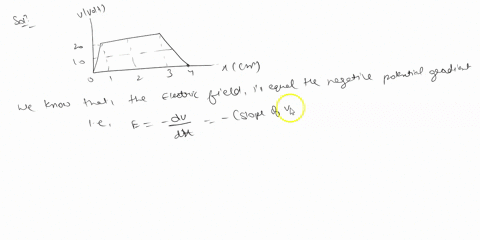 Sol?
V(Volt)
20
10
0 1 2 3 4 x(cm)
We know that, the Electric field, is equal the negative potential gradient
i.e, E = -dv/dx = - (slope of V